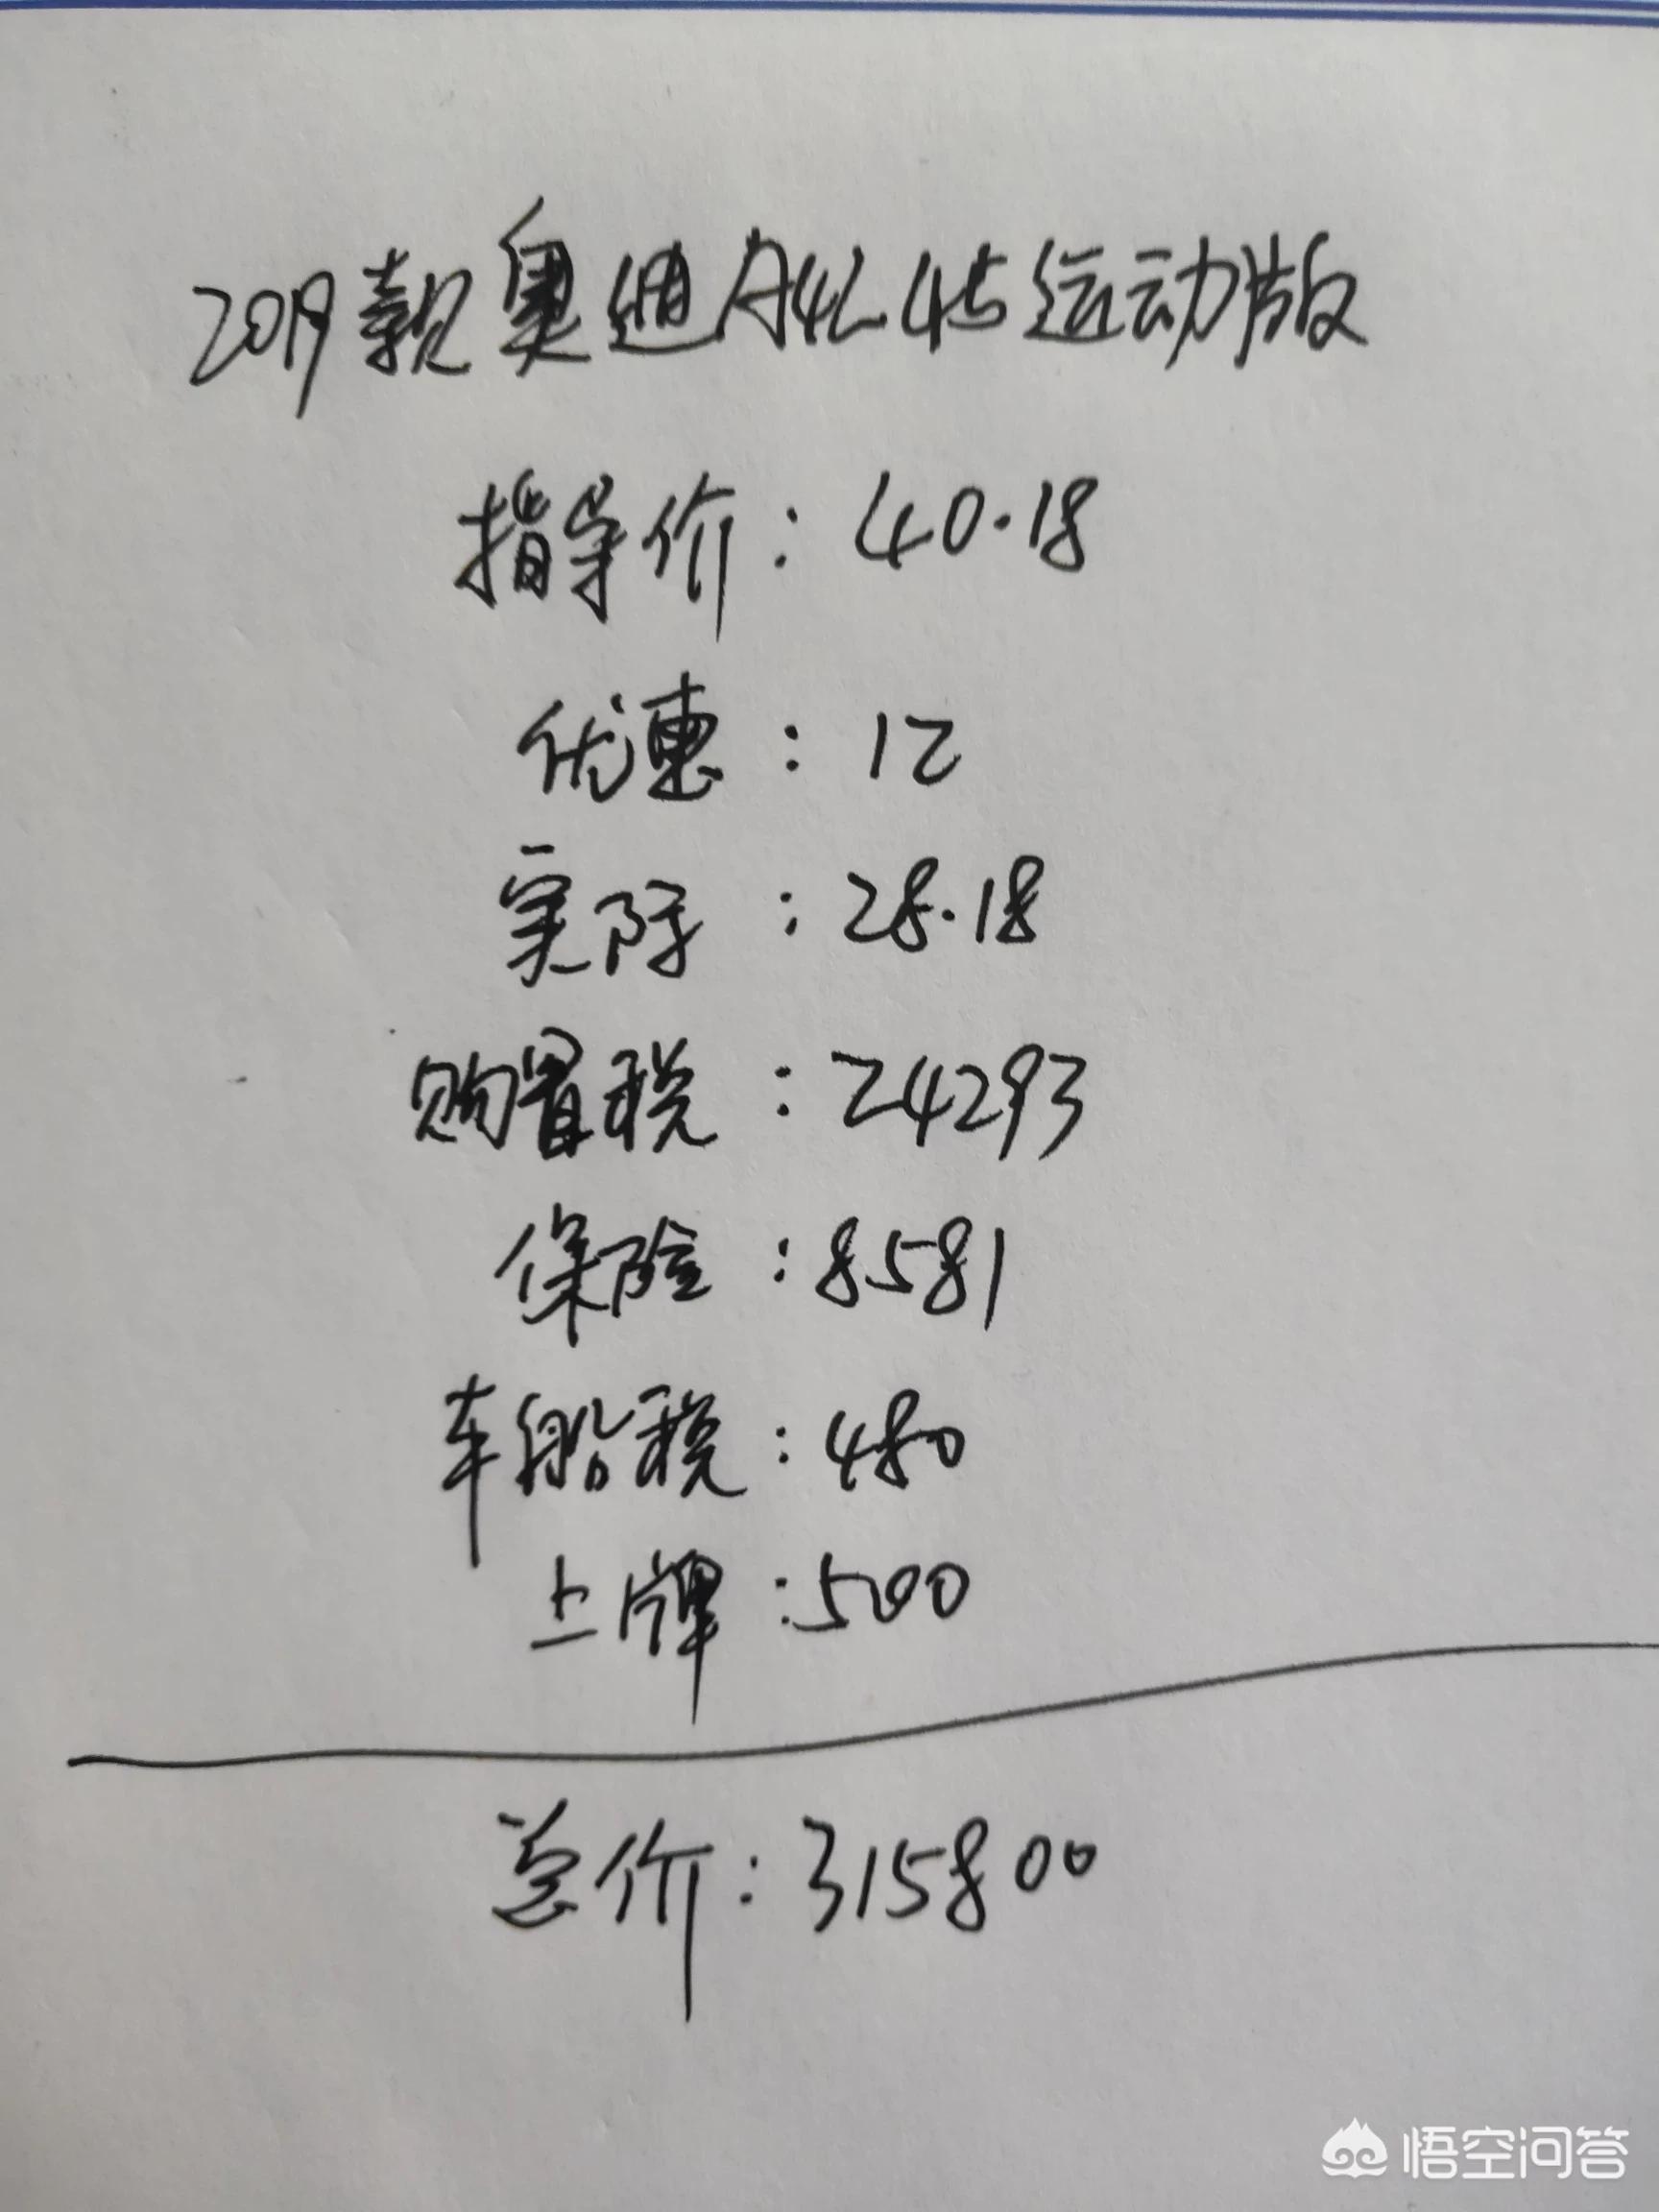 2019款奥迪A4L 45运动版
指导价：40.18
优惠：12
实际：28.18
购置税：24293
保险：8581
车船税：480
上牌：500
总价：315800
悟空问答